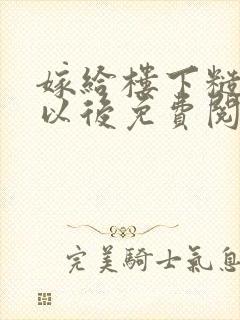 嫁給樓下糙
以後免費閱
完美騎士氣息